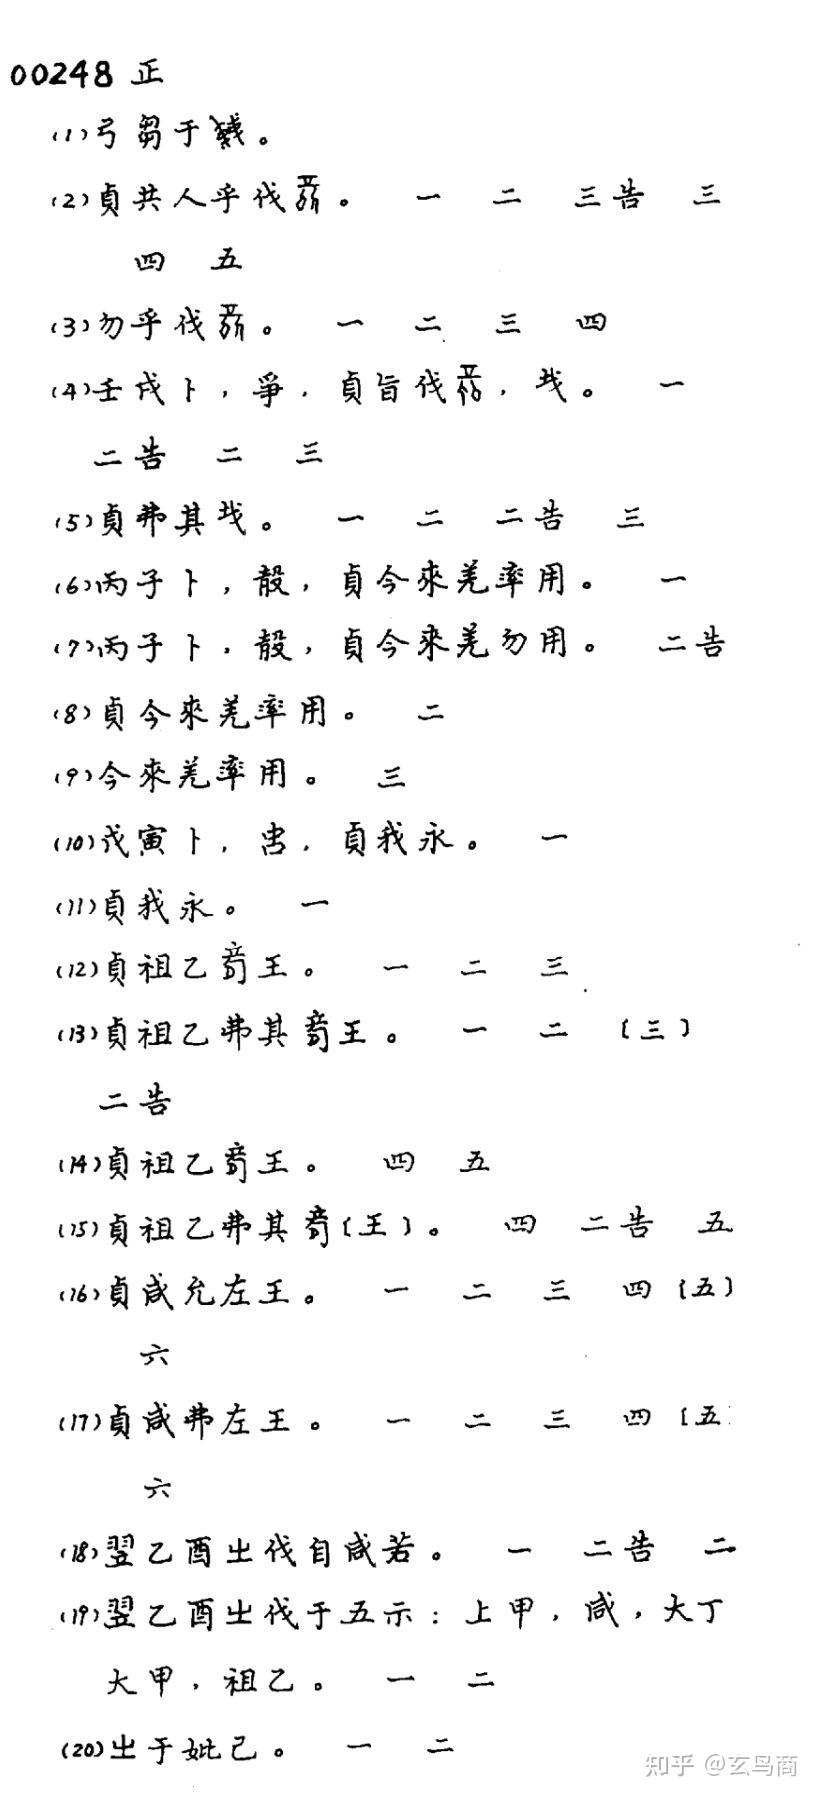 00248 正
(1)弓芻于。
(2)貞共人乎伐。 一 二 三告 三
四 五
(3)勿乎伐。 一 二 三 四
(4)壬戌卜,爭,貞旨伐,𢦏。 一
二告 二 三
(5)貞弗其𢦏。 一 二 二告 三
(6)丙子卜,㱿,貞今來羌率用。 一
(7)丙子卜,㱿,貞今來羌勿用。 二告
(8)貞今來羌率用。 二
(9)今來羌率用。 三
(10)戊寅卜,,貞我永。 一
(11)貞我永。 一
(12)貞祖乙王。 一 二 三
(13)貞祖乙弗其王。 一 二 〔三〕
二告
(14)貞祖乙王。 四 五
(15)貞祖乙弗其〔王〕。 四 二告 五
(16)貞咸允左王。 一 二 三 四〔五〕
六
(17)貞咸弗左王。 一 二 三 四〔五
六
(18)翌乙酉㞢伐自咸若。 一 二告 二
(19)翌乙酉㞢伐于五示:上甲,咸,大丁
大甲,祖乙。 一 二
(20)㞢于妣己。 一 二
知乎 @玄鸟商